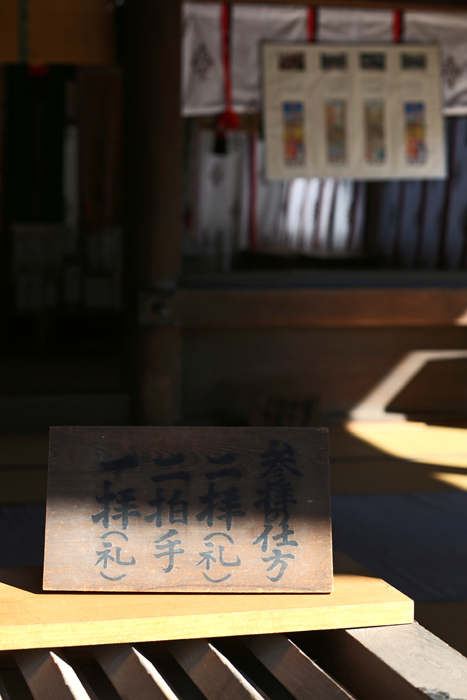 参拝の仕方
二拝(礼)
二拍手
一拝(礼)